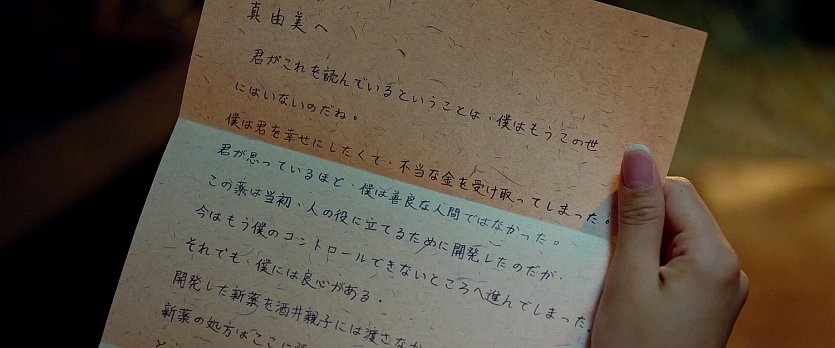 真由美へ
君がこれを読んでいるということは、僕はもうこの世
にはいないのだね。
僕は君を幸せにしたくて、不当な金を受け取ってしまった。
君が思っているほど、僕は善良な人間ではなかった。
この薬は当初、人の役に立てるために開発したのだが、
今はもう僕のコントロールできないところへ進んでしまった。
それでも、僕には良心がある。
開発した新薬を酒井親子には渡さなか
新薬の処方はここに
と